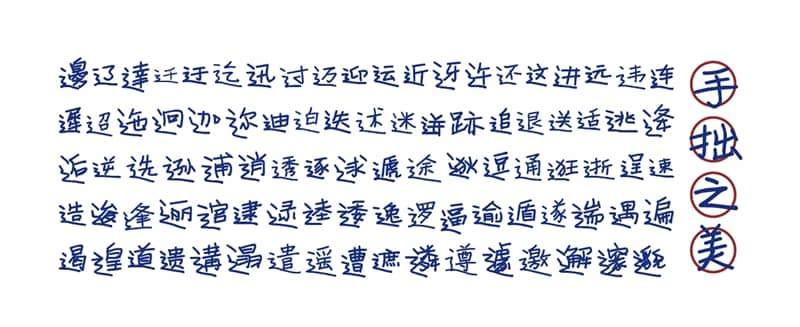 邊辽達迁迂迄迅过迈迎运近迓迕还这进远违连
遲迢迤迥迦迩迪迫迭述迷迸跡追退送适逃逄
逅逆选逊逋逍透逐逑遞途逖逗通逛逝逞速
造逡逢逦逭逮逯逵逶逸逻逼逾遁遂遄遇遍
遏遑道遗遘遢遣遥遭遮遴遵遽邀邂邃邈
手拙之美